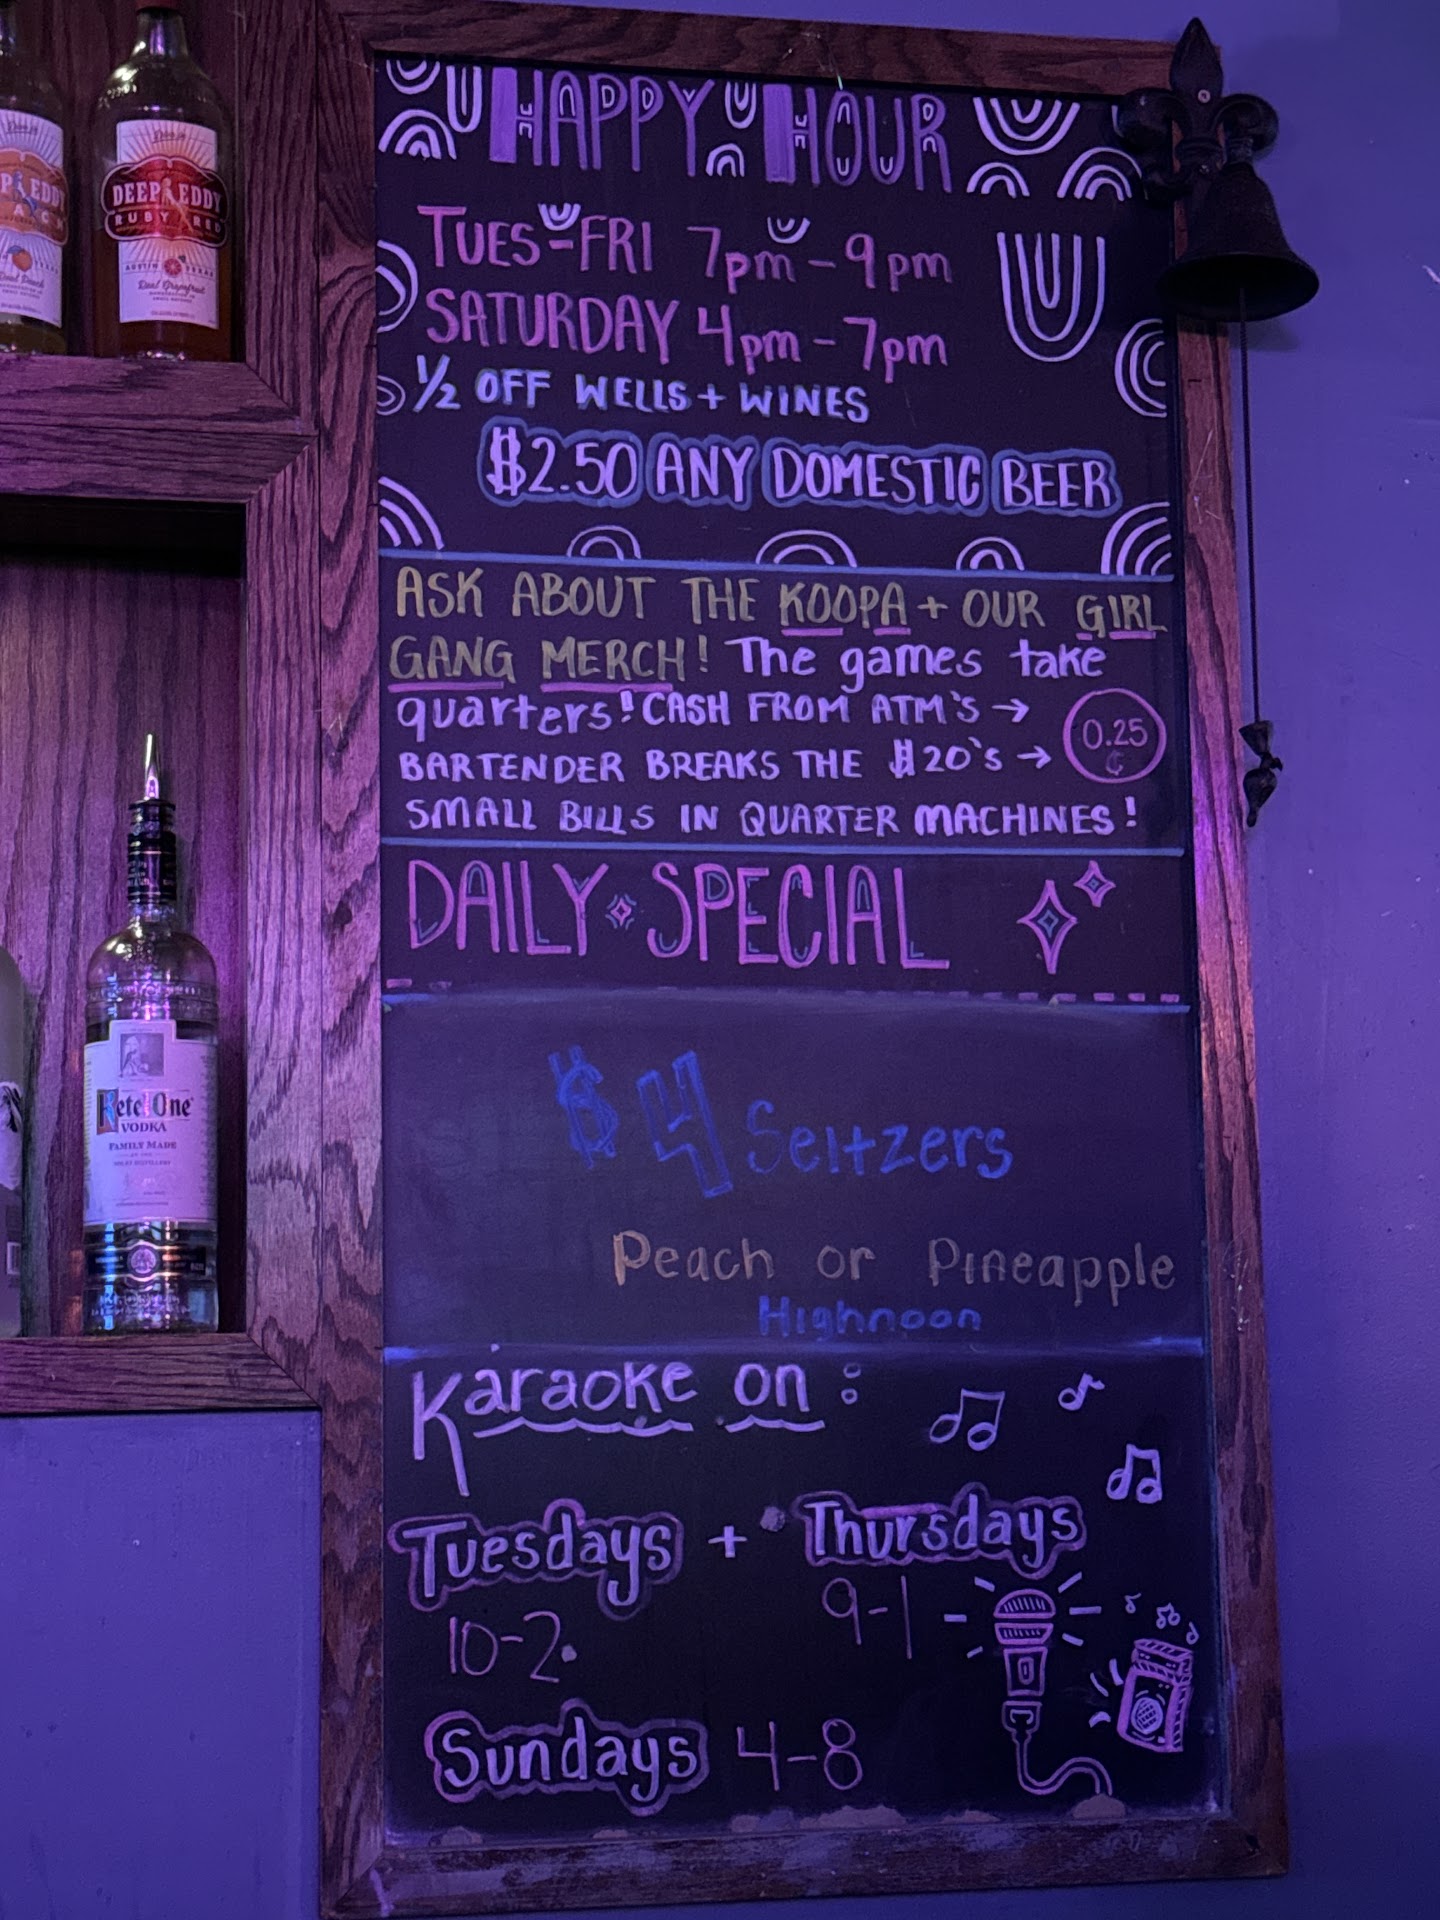 HAPPY HOUR
TUES-FRI 7pm-9pm
SATURDAY 4pm-7pm
1/2 OFF WELLS + WINES
$2.50 ANY DOMESTIC BEER
ASK ABOUT THE KOOPA + OUR GIRL
GANG MERCH! The games take
quarters! CASH FROM ATM'S →
BARTENDER BREAKS THE $20'S →
0.25
¢
SMALL BILLS IN QUARTER MACHINES!
DAILY SPECIAL
$4 Seltzers
Peach or Pineapple
Highnoon
Karaoke on:
Tuesdays + Thursdays
10-2 9-1
Sundays 4-8
DEEP EDDY
RUBY RED
AUSTIN TEXAS
Real Grapefruit
Ketel One
VODKA
FAMILY MADE